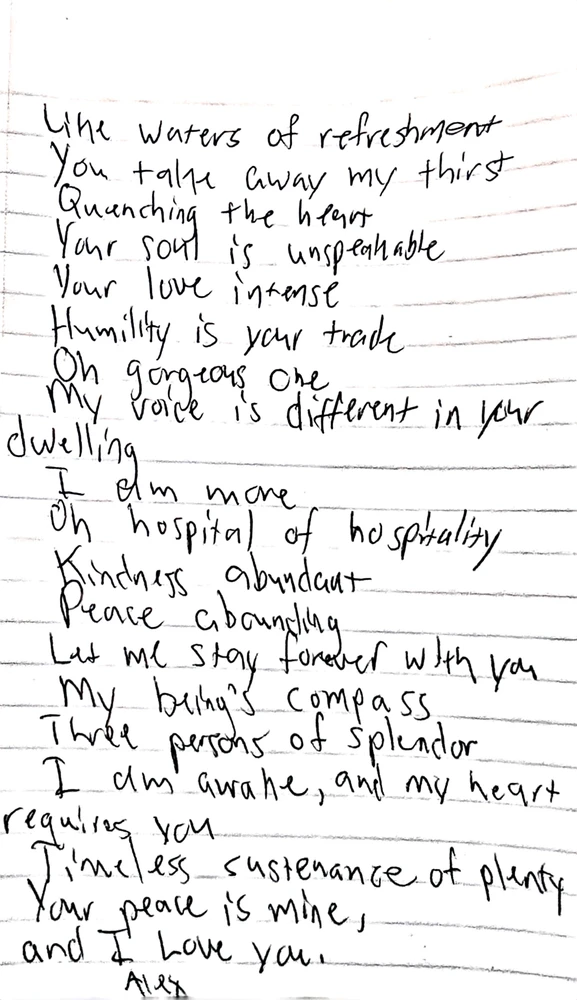 Like waters of refreshment
You take away my thirst
Quenching the heart
Your soul is unspeakable
Your love intense
Humility is your trade
Oh gorgeous one
My voice is different in your
dwelling
I am more
Oh hospital of hospitality
Kindness abundant
Peace abounding
Let me stay forever with you
My being's compass
Three persons of splendor
I am awake, and my heart
requires you
Timeless sustenance of plenty
Your peace is mine,
and I Love you.
Alex